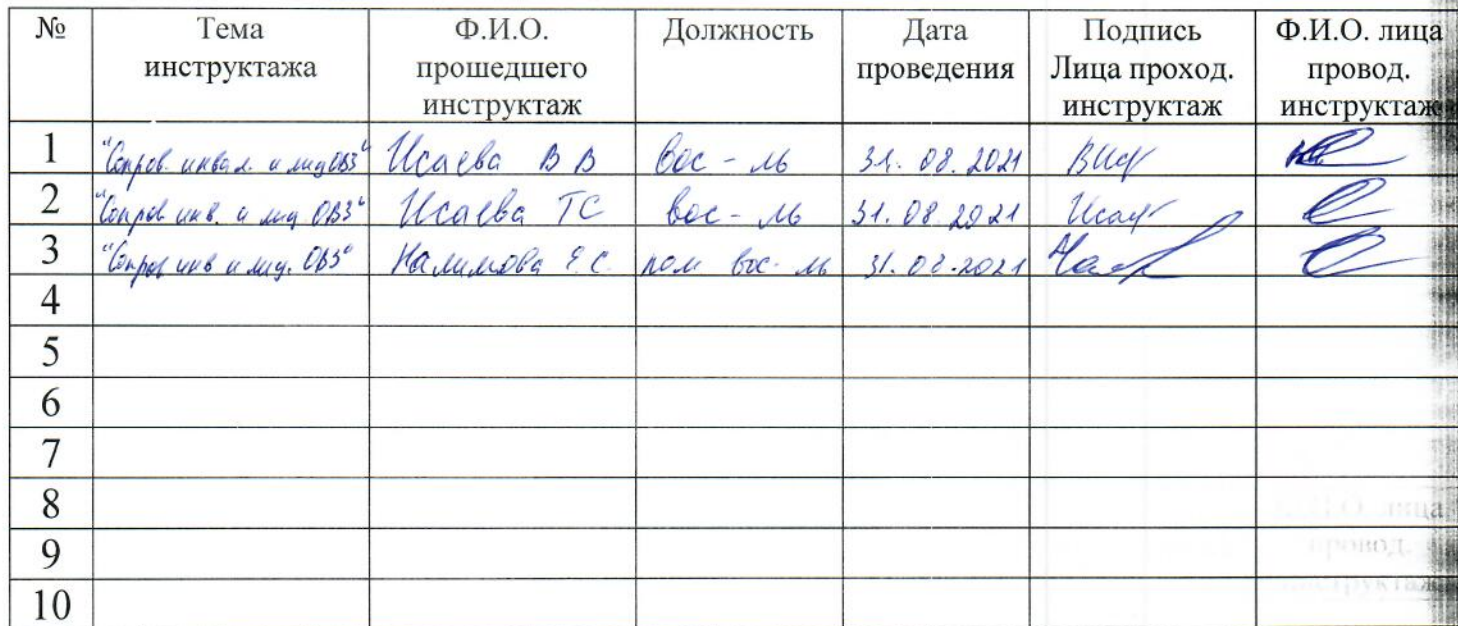 № Тема инструктажа Ф.И.О. прошедшего инструктаж Должность Дата проведения Подпись Лица проход. инструктаж Ф.И.О. лица провод. инструктаж
1 "Сопров. инвал. и лиц ОВЗ" Исаева В В вос-ль 31.08.2021
2 "Сопров инв. и лиц ОВЗ" Исаева ТС вос-ль 31.08.2021
3 "Сопров инв и лиц. ОВЗ" Налимова Е.С. пом вос-ль 31.08.2021
4
5
6
7
8
9
10